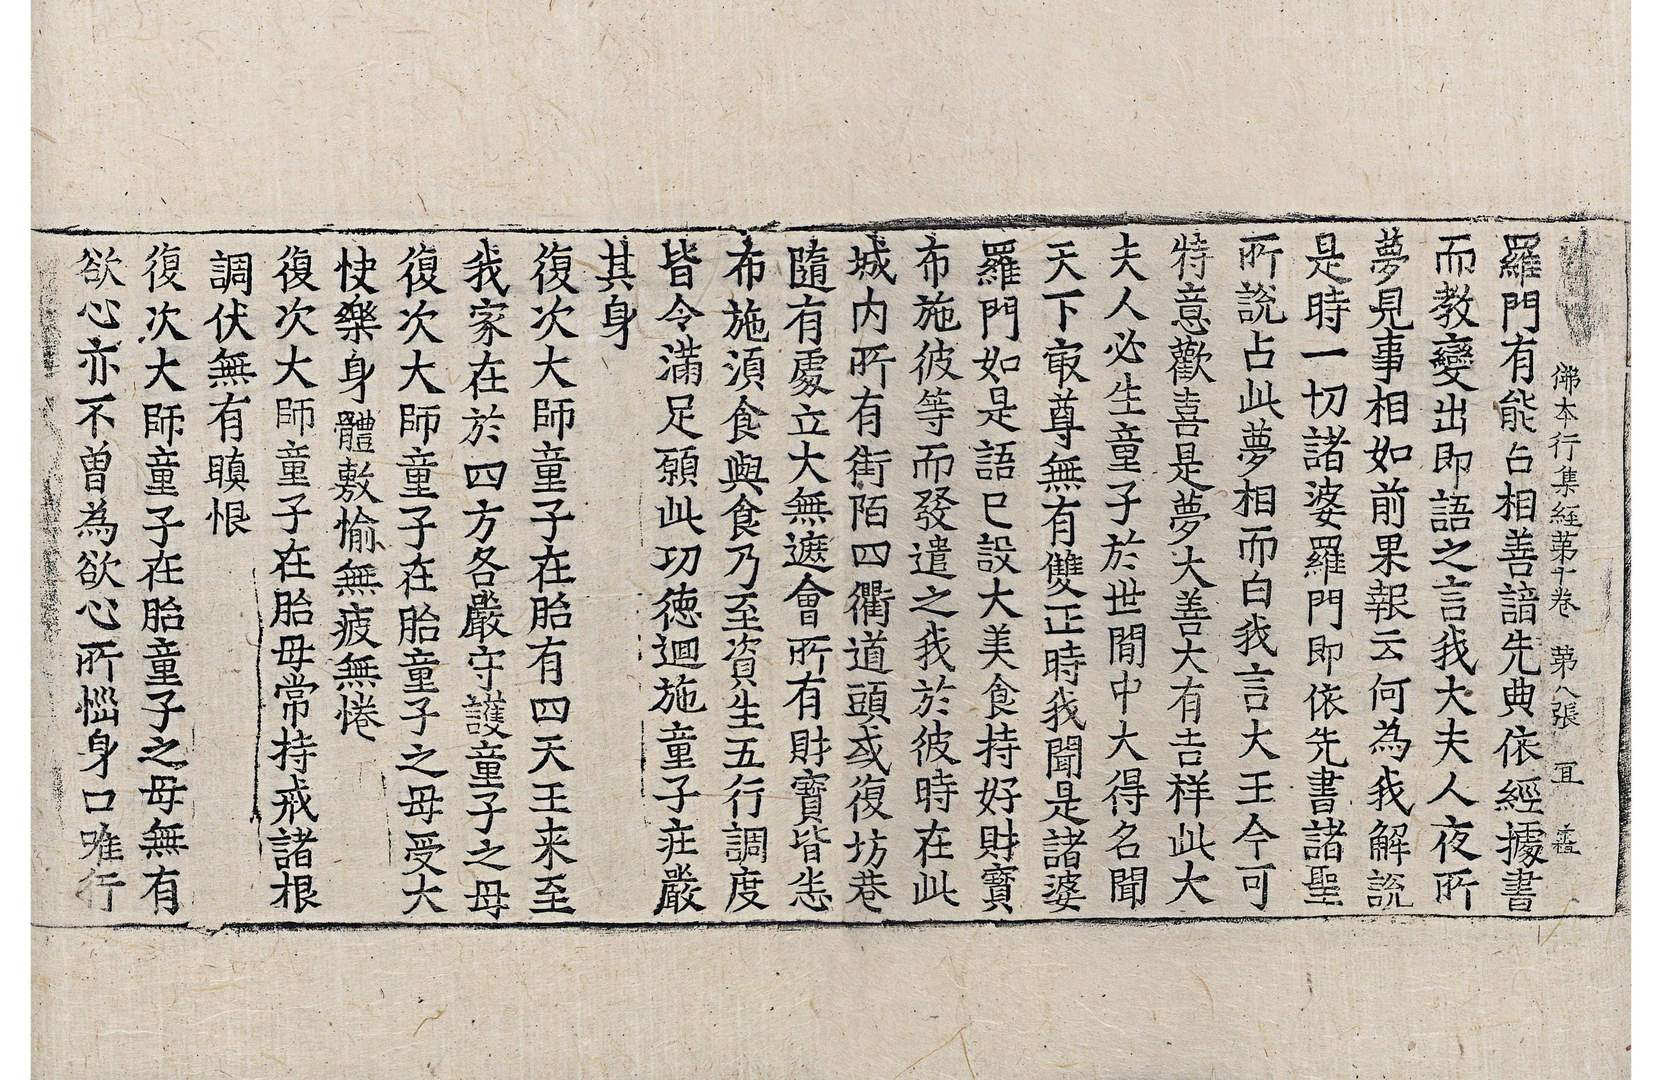 佛本行集經第十卷 第八張 冝
羅門有能占相善諳先典依經據書
而教變出即語之言我大夫人夜所
夢見事相如前果報云何為我解說
是時一切諸婆羅門即依先書諸聖
所說占此夢相而白我言大王今可
特意歡喜是夢大善大有吉祥此大
夫人必生童子於世間中大得名聞
天下㝡尊無有雙正時我聞是諸婆
羅門如是語已設大美食持好財寶
布施彼等而發遣之我於彼時在此
城内所有街陌四衢道頭或復坊巷
隨有處立大無遮會所有財寶皆悉
布施湏食與食乃至資生五行調度
皆令滿足願此功徳迴施童子莊嚴
其身
復次大師童子在胎有四天王来至
我家在於四方各嚴守護童子之母
復次大師童子在胎童子之母受大
快樂身體敷愉無疲無惓
復次大師童子在胎母常持戒諸根
調伏無有瞋恨
復次大師童子在胎童子之母無有
欲心亦不曾為欲心所惱身口唯行